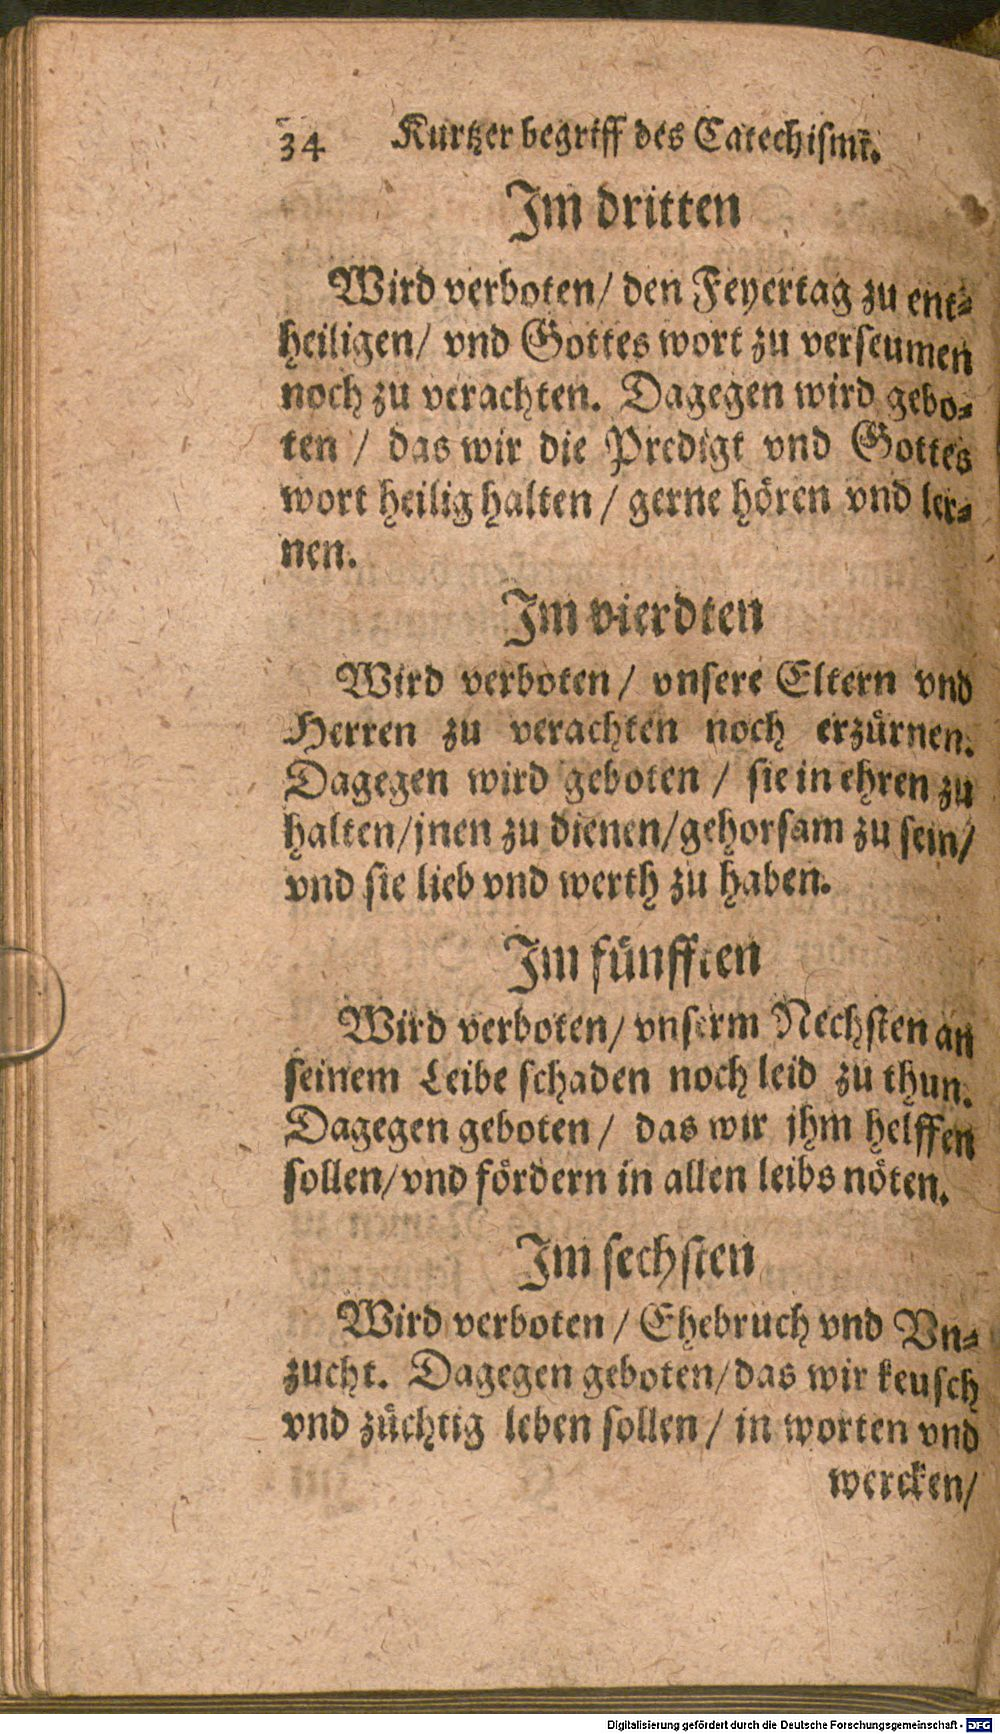 34 Kurtzer begriff des Catechismi.
Im dritten
Wird verboten/ den Feyertag zu ent-
heiligen/ vnd Gottes wort zu verseumen
noch zu verachten. Dagegen wird gebo-
ten / das wir die Predigt vnd Gottes
wort heilig halten / gerne hören vnd ler-
nen.
Im vierdten
Wird verboten / vnsere Eltern vnd
Herren zu verachten noch erzürnen.
Dagegen wird geboten / sie in ehren zu
halten/jnen zu dienen/gehorsam zu sein/
vnd sie lieb vnd werth zu haben.
Im fünfften
Wird verboten/ vnserm Nechsten an
seinem Leibe schaden noch leid zu thun.
Dagegen geboten / das wir jhm helffen
sollen/vnd fördern in allen leibs nöten.
Im sechsten
Wird verboten / Ehebruch vnd Vn-
zucht. Dagegen geboten/das wir keusch
vnd züchtig leben sollen / in worten vnd
wercken/
Digitalisierung gefördert durch die Deutsche Forschungsgemeinschaft - DFG